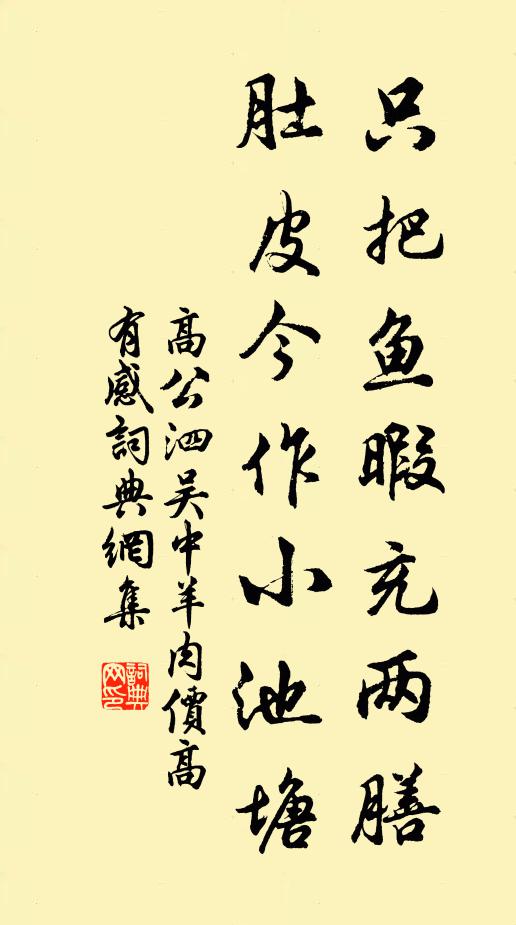 只把鱼暇充两膳
肚皮今作小池塘
高公泗吴中羊肉價高
有感詞典網集
詞典
网印